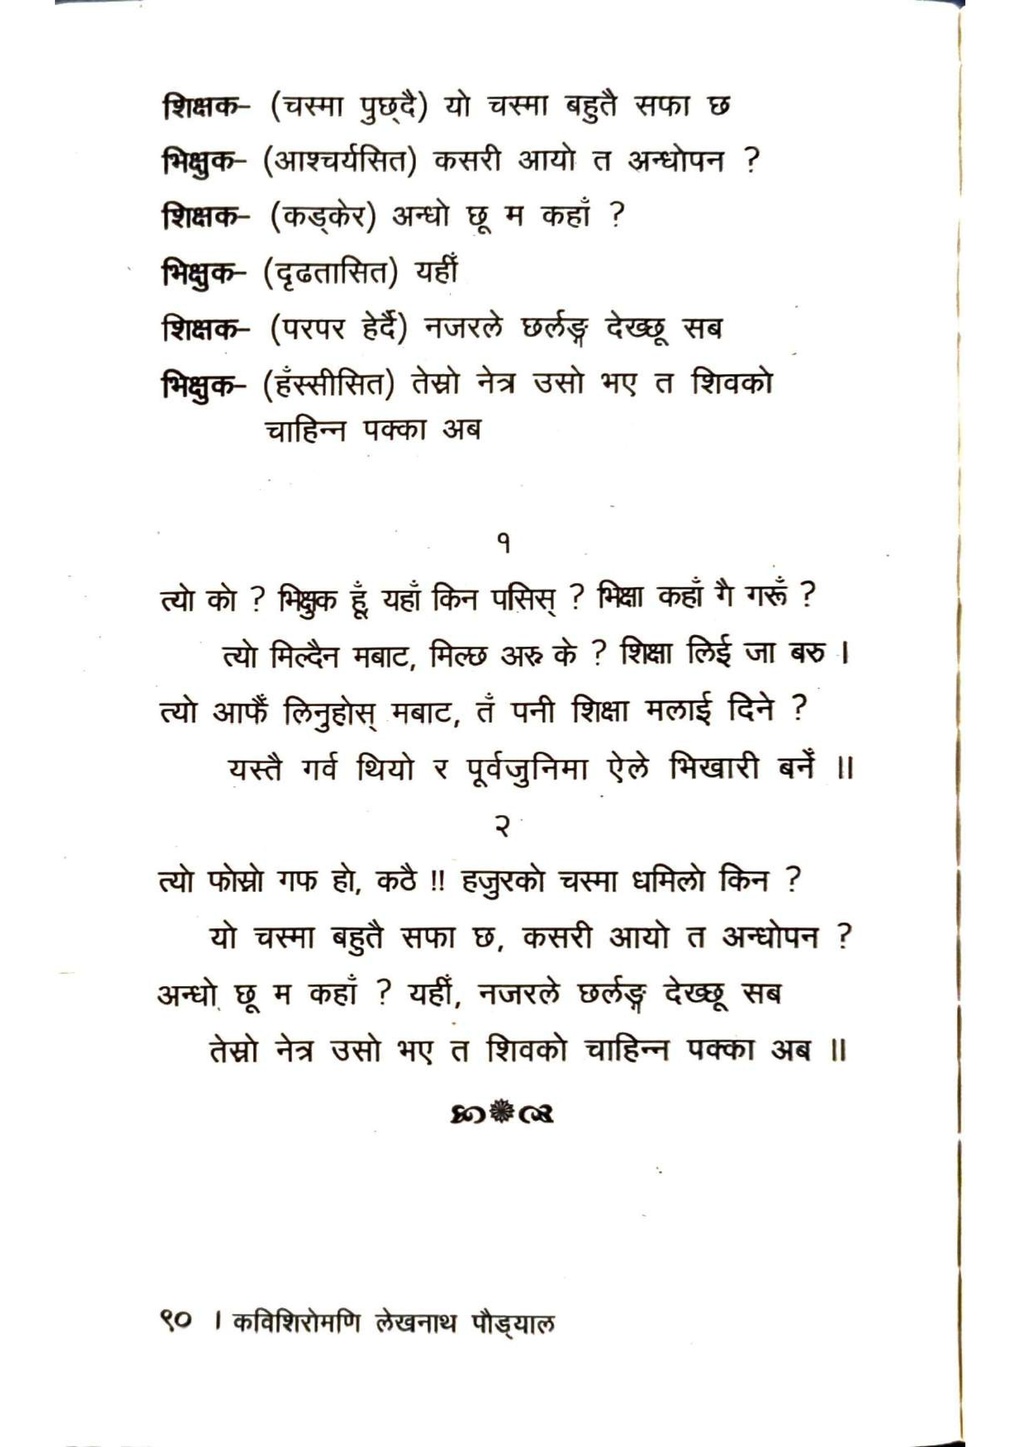 शिक्षक– (चस्मा पुछ्दै) यो चस्मा बहुतै सफा छ
भिक्षुक– (आश्चर्यसित) कसरी आयो त अन्धोपन ?
शिक्षक– (कड्केर) अन्धो छू म कहाँ ?
भिक्षुक– (दृढतासित) यहीँ
शिक्षक– (परपर हेर्दै) नजरले छर्लङ्ग देख्छू सब
भिक्षुक– (हँस्सीसित) तेस्रो नेत्र उसो भए त शिवको
चाहिन्न पक्का अब
१
त्यो को ? भिक्षुक हूँ यहाँ किन पसिस् ? भिक्षा कहाँ गै गरूँ ?
त्यो मिल्दैन मबाट, मिल्छ अरु के ? शिक्षा लिई जा बरु ।
त्यो आफैँ लिनुहोस् मबाट, तँ पनी शिक्षा मलाई दिने ?
यस्तै गर्व थियो र पूर्वजुनिमा ऐले भिखारी बनेँ ॥
२
त्यो फोस्रो गफ हो, कठै !! हजुरको चस्मा धमिलो किन ?
यो चस्मा बहुतै सफा छ, कसरी आयो त अन्धोपन ?
अन्धो छू म कहाँ ? यहीँ, नजरले छर्लङ्ग देख्छू सब
तेस्रो नेत्र उसो भए त शिवको चाहिन्न पक्का अब ॥
९० । कविशिरोमणि लेखनाथ पौड्याल